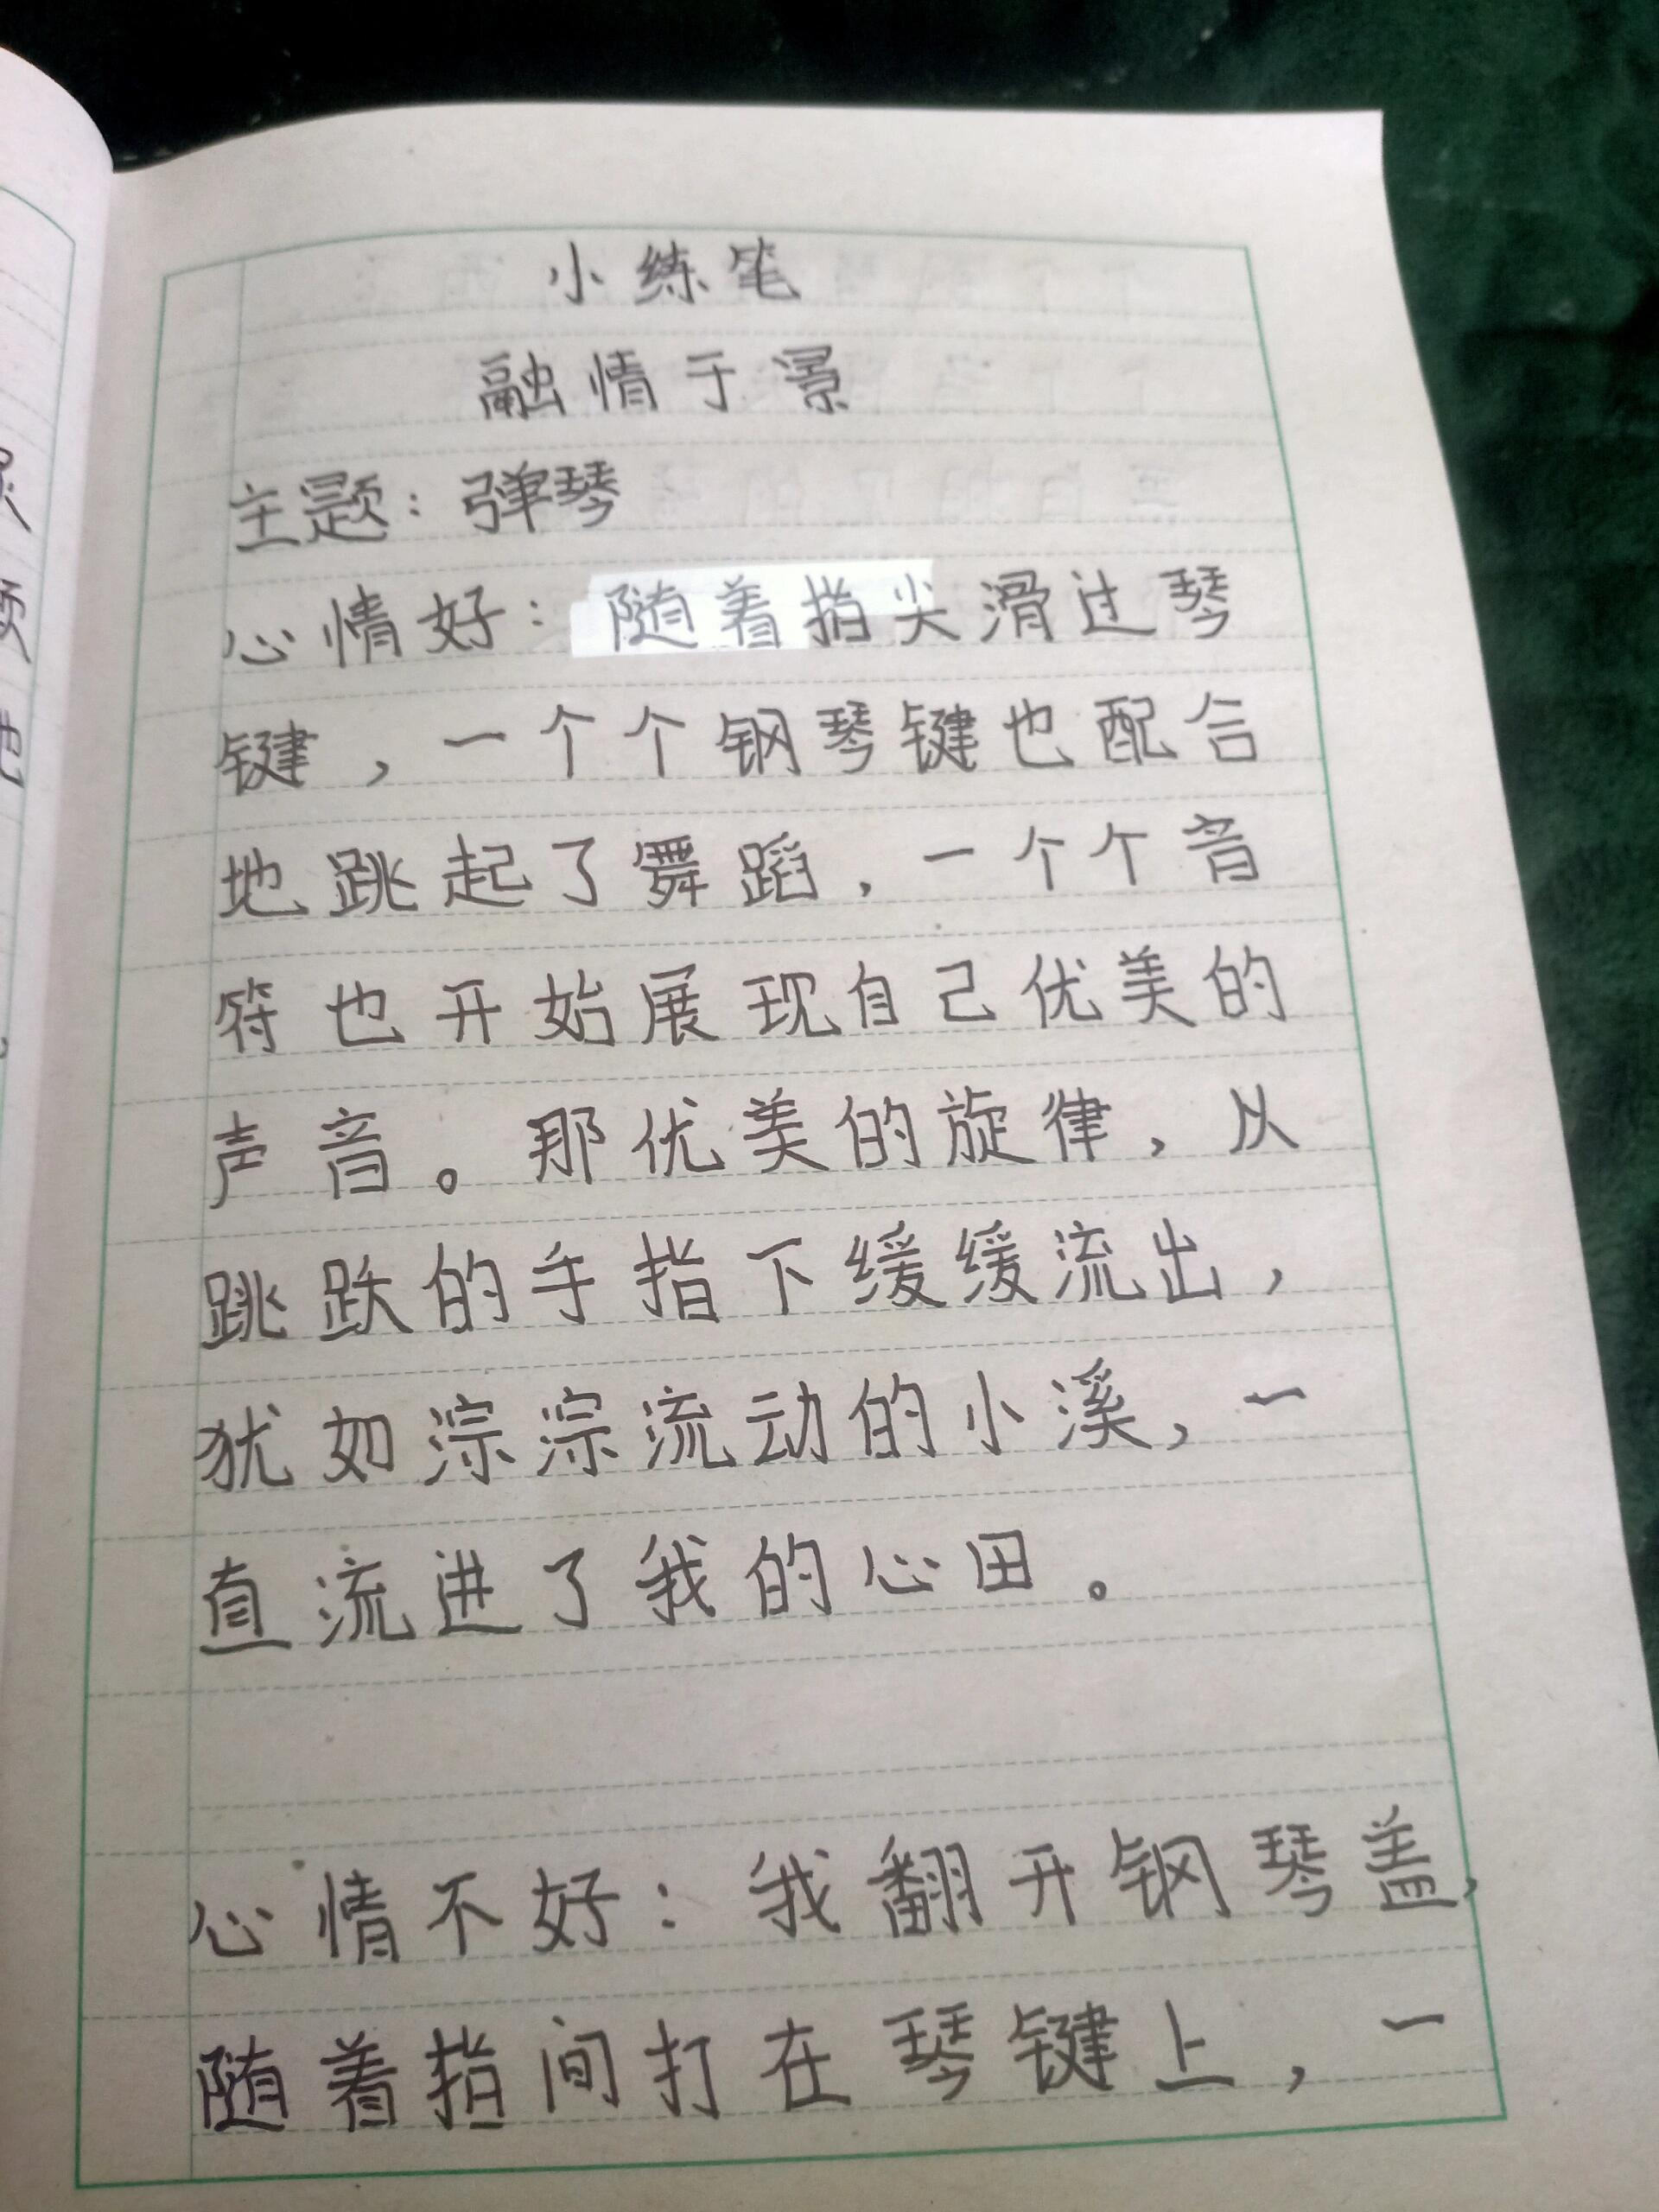 小练笔
融情于景
主题：弹琴
心情好：随着指尖滑过琴
键，一个个钢琴键也配合
地跳起了舞蹈，一个个音
符也开始展现自己优美的
声音。那优美的旋律，从
跳跃的手指下缓缓流出，
犹如淙淙流动的小溪，一
直流进了我的心田。
心情不好：我翻开钢琴盖，
随着指间打在琴键上，一